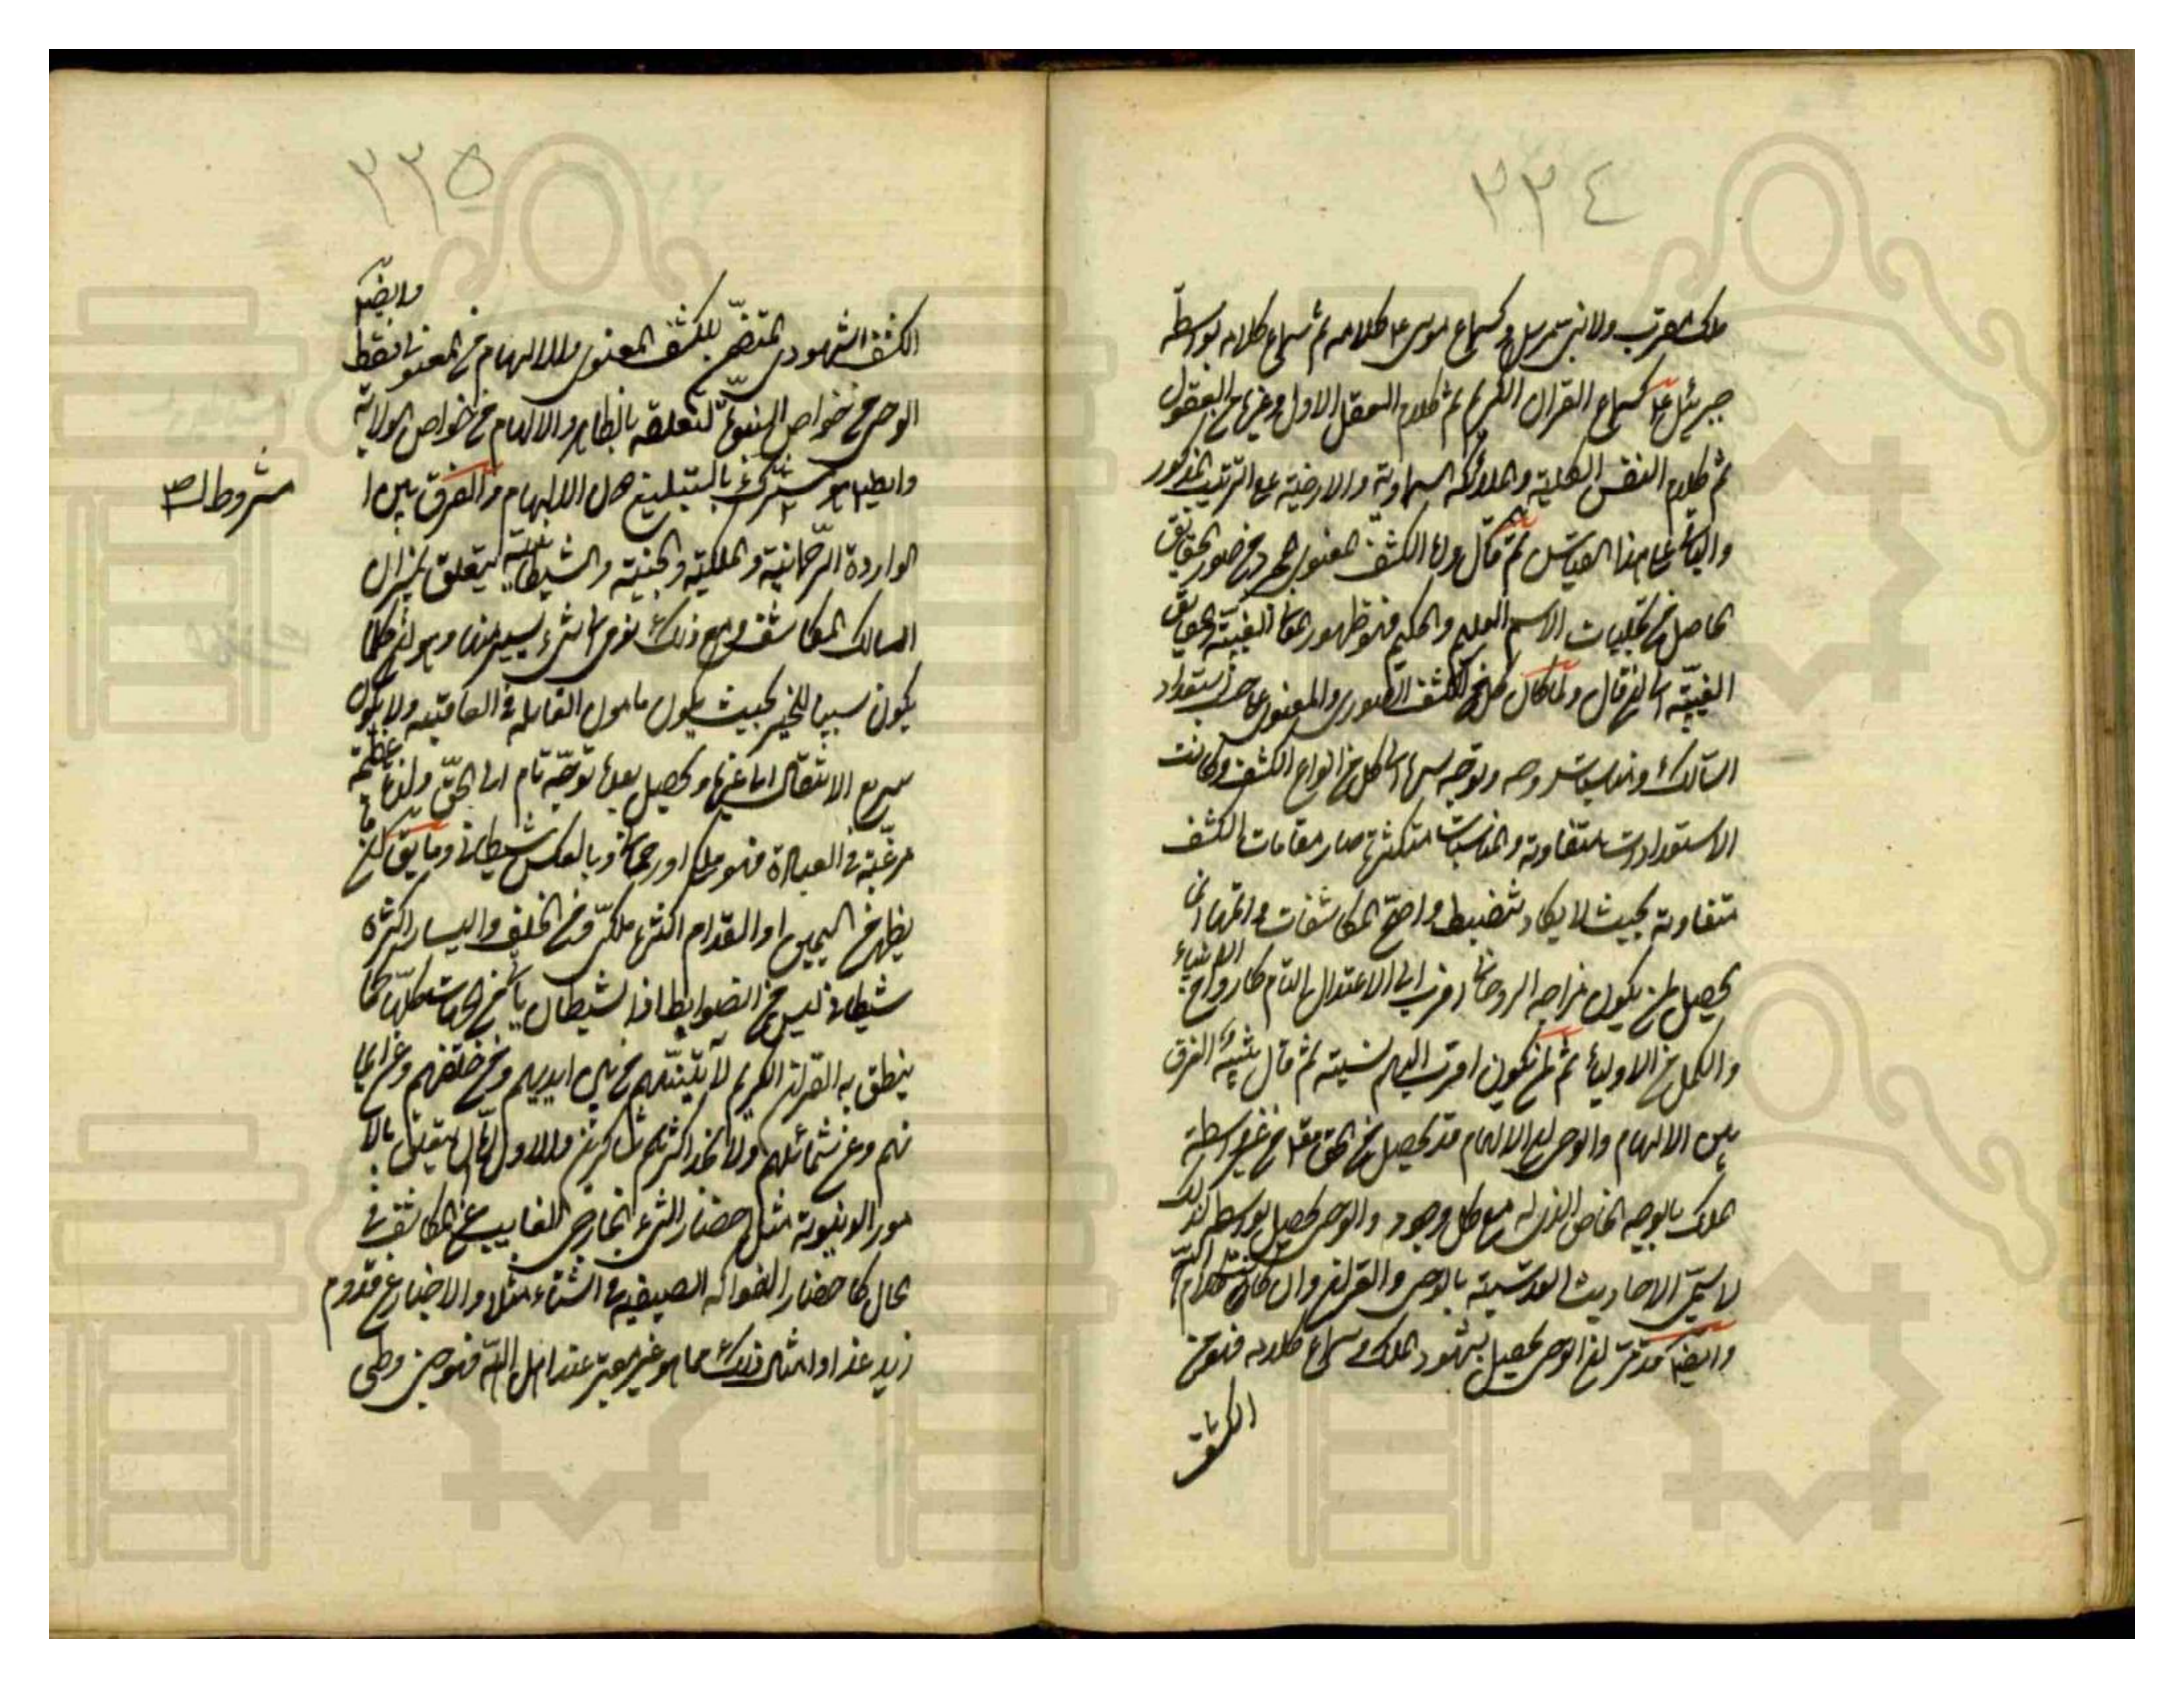 ٢٢٤
ملك مقرب ولا نبي مرسل وكسماع موسى ع كلامه ثم سماع كلامه بوسطة
جبرئيل ع كسماع القران الكريم ثم كلام العقل الاول وغيره من العقول
ثم كلام النفس الكلية والملائكة السماوية والارضية على الترتيب المذكور
والباقي على هذا القياس ثم قال واما الكشف المعنوي المجرد من صور الحقايق
الحاصل من تجليات الاسم العليم والحكيم فهو ظهور المعاني الغيبية والحقايق
الغيبية الى ان قال ولما كان كل من الكشف الصوري والمعنوي على حسب استعداد
السالك ومناسبات روحه وتوجه سره الى كل من انواع الكشف وكانت
الاستعدادات متفاوتة والمناسبات متكثرة صار مقامات الكشف
متفاوتة بحيث لا يكاد تنضبط واصح المكاشفات واتمها انما
يحصل لمن يكون مزاجه الروحاني اقرب الى الاعتدال التام كارواح الانبياء
والكمل من الاولياء ثم لمن يكون اقرب اليهم نسبة ثم قال الفرق
بين الالهام والوحي ان الالهام قد يحصل من الحق تعالى من غير واسطة
الملك بالوجه الخاص الذي له مع كل موجود والوحي يحصل بواسطته لذلك
لا يسمى الاحاديث القدسية بالوحي والقران وان كانت كلام الله
وايضا قد مر ان الوحي يحصل بشهود الملك وسماع كلامه فهو من
الكشف
٢٢٥
الكشف الشهودي المتضمن للكشف المعنوي والالهام من المعنوي فقط وايضا
الوحي من خواص النبوة لتعلقه بالظاهر والالهام من خواص الولاية
وايضا هو مشروط بالتبليغ دون الالهام والفرق بين ا
شروط لـ صح
الواردة الرحمانية والملكية والجنية والشيطانية يتعلق بميزان
السالك المكاشف ومع ذلك نومي الى شيء يسير منها وهو ان كلما
يكون سببا للخير بحيث يكون مامون الغايلة في العاقبة ولا يكون
سريع الانتقال الى غيره ويحصل بعده توجه تام الى الحق ولذة عظيمة
مرغبة في العبادة فهو ملكي او رحماني وبالعكس شيطاني وما يقال ان ما
يظهر من اليمين او القدام اكثره ملكي ومن الخلف واليسار اكثره
شيطاني ليس من الضوابط اذ الشيطان ياتي من الجهات كلها كما
ينطق به القران الكريم لآتينهم من بين ايديهم ومن خلفهم وعن ايما
نهم وعن شمائلهم ولا تجد اكثرهم شاكرين والاول اما ان يتعلق بالا
مور الدنيوية مثل احضار الشيء الخارجي الغايب عن المكاشف في
الحال كاحضار الفواكه الصيفية في الشتاء مثلا والاخبار عن قدوم
زيد غدا وامثال ذلك مما هو غير معتبر عند اهل الله فهو جني وطي